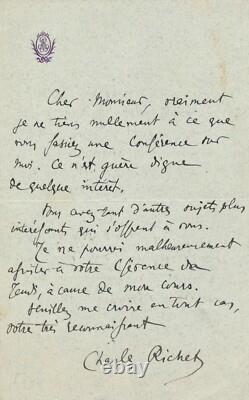 Cher Monsieur, vraiment
je ne tiens nullement à ce que
vous fassiez une Conférence sur
moi. Ce n'est guère digne
de quelque intérêt.
Vous avez tant d'autres sujets plus
intéressants qui s'offrent à vous.
Je ne pourrai malheureusement
assister à votre Cférence de
Jeudi, à cause de mon cours.
Veuillez me croire en tout cas,
votre très reconnaissant
Charles Richet